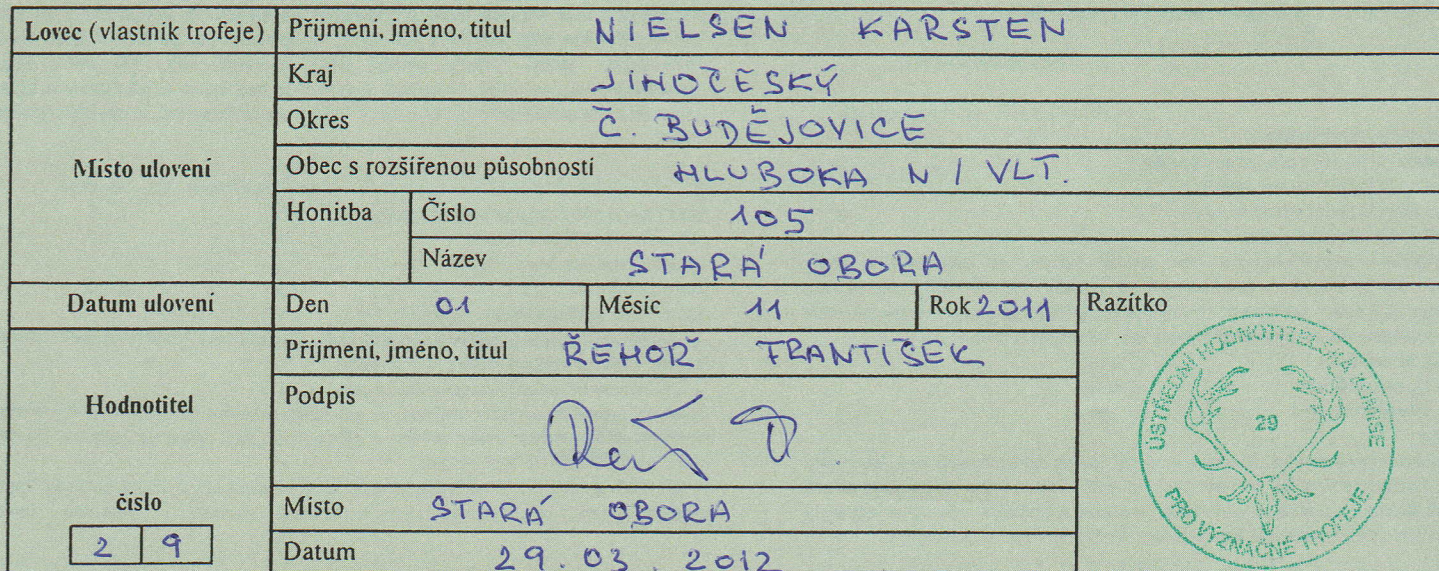 Lovec (vlastník trofeje) Příjmení, jméno, titul NIELSEN KARSTEN
Místo ulovení
Kraj JIHOČESKÝ
Okres Č. BUDĚJOVICE
Obec s rozšířenou působností HLUBOKA N / VLT.
Honitba Číslo 105
Název STARÁ OBORA
Datum ulovení Den 01 Měsíc 11 Rok 2011 Razítko
Hodnotitel
Příjmení, jméno, titul ŘEHOŘ FRANTIŠEK
Podpis
číslo
2 9
Místo STARÁ OBORA
Datum 29.03.2012
ÚSTŘEDNÍ HODNOTITELSKÁ KOMISE
29
PRO VÝZNAČNÉ TROFEJE